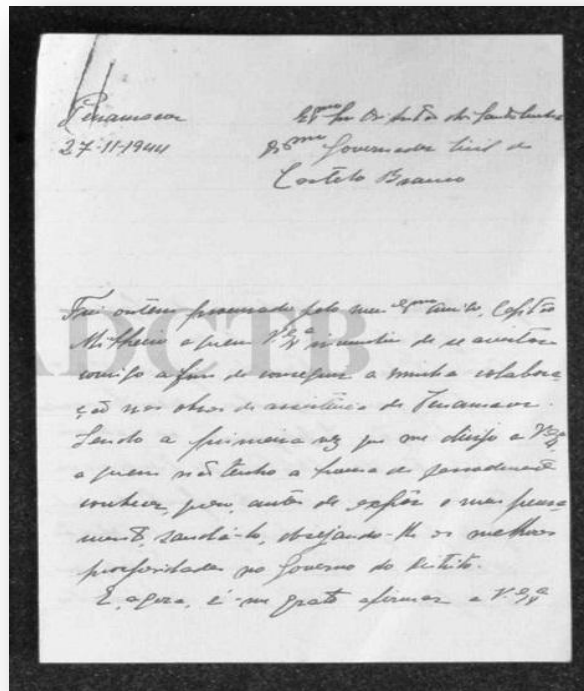 Penamacor
27-11-1944
Governador Civil de
Castelo Branco
ADCTB
Fui ontem procurado pelo meu Exmo amigo, Capitão
a quem V. Exª incumbiu de se avistar
comigo a fim de conseguir a minha colabora-
ção nas obras de assistência de Penamacor.
Sendo a primeira vez que me dirijo a V. Exª
a quem não tenho a honra de pessoalmente
conhecer, quero, antes de expôr o meu pensa-
mento, saudá-lo, desejando-lhe as melhores
prosperidades no Governo do distrito.
E, agora, é-me grato afirmar a V. Exª